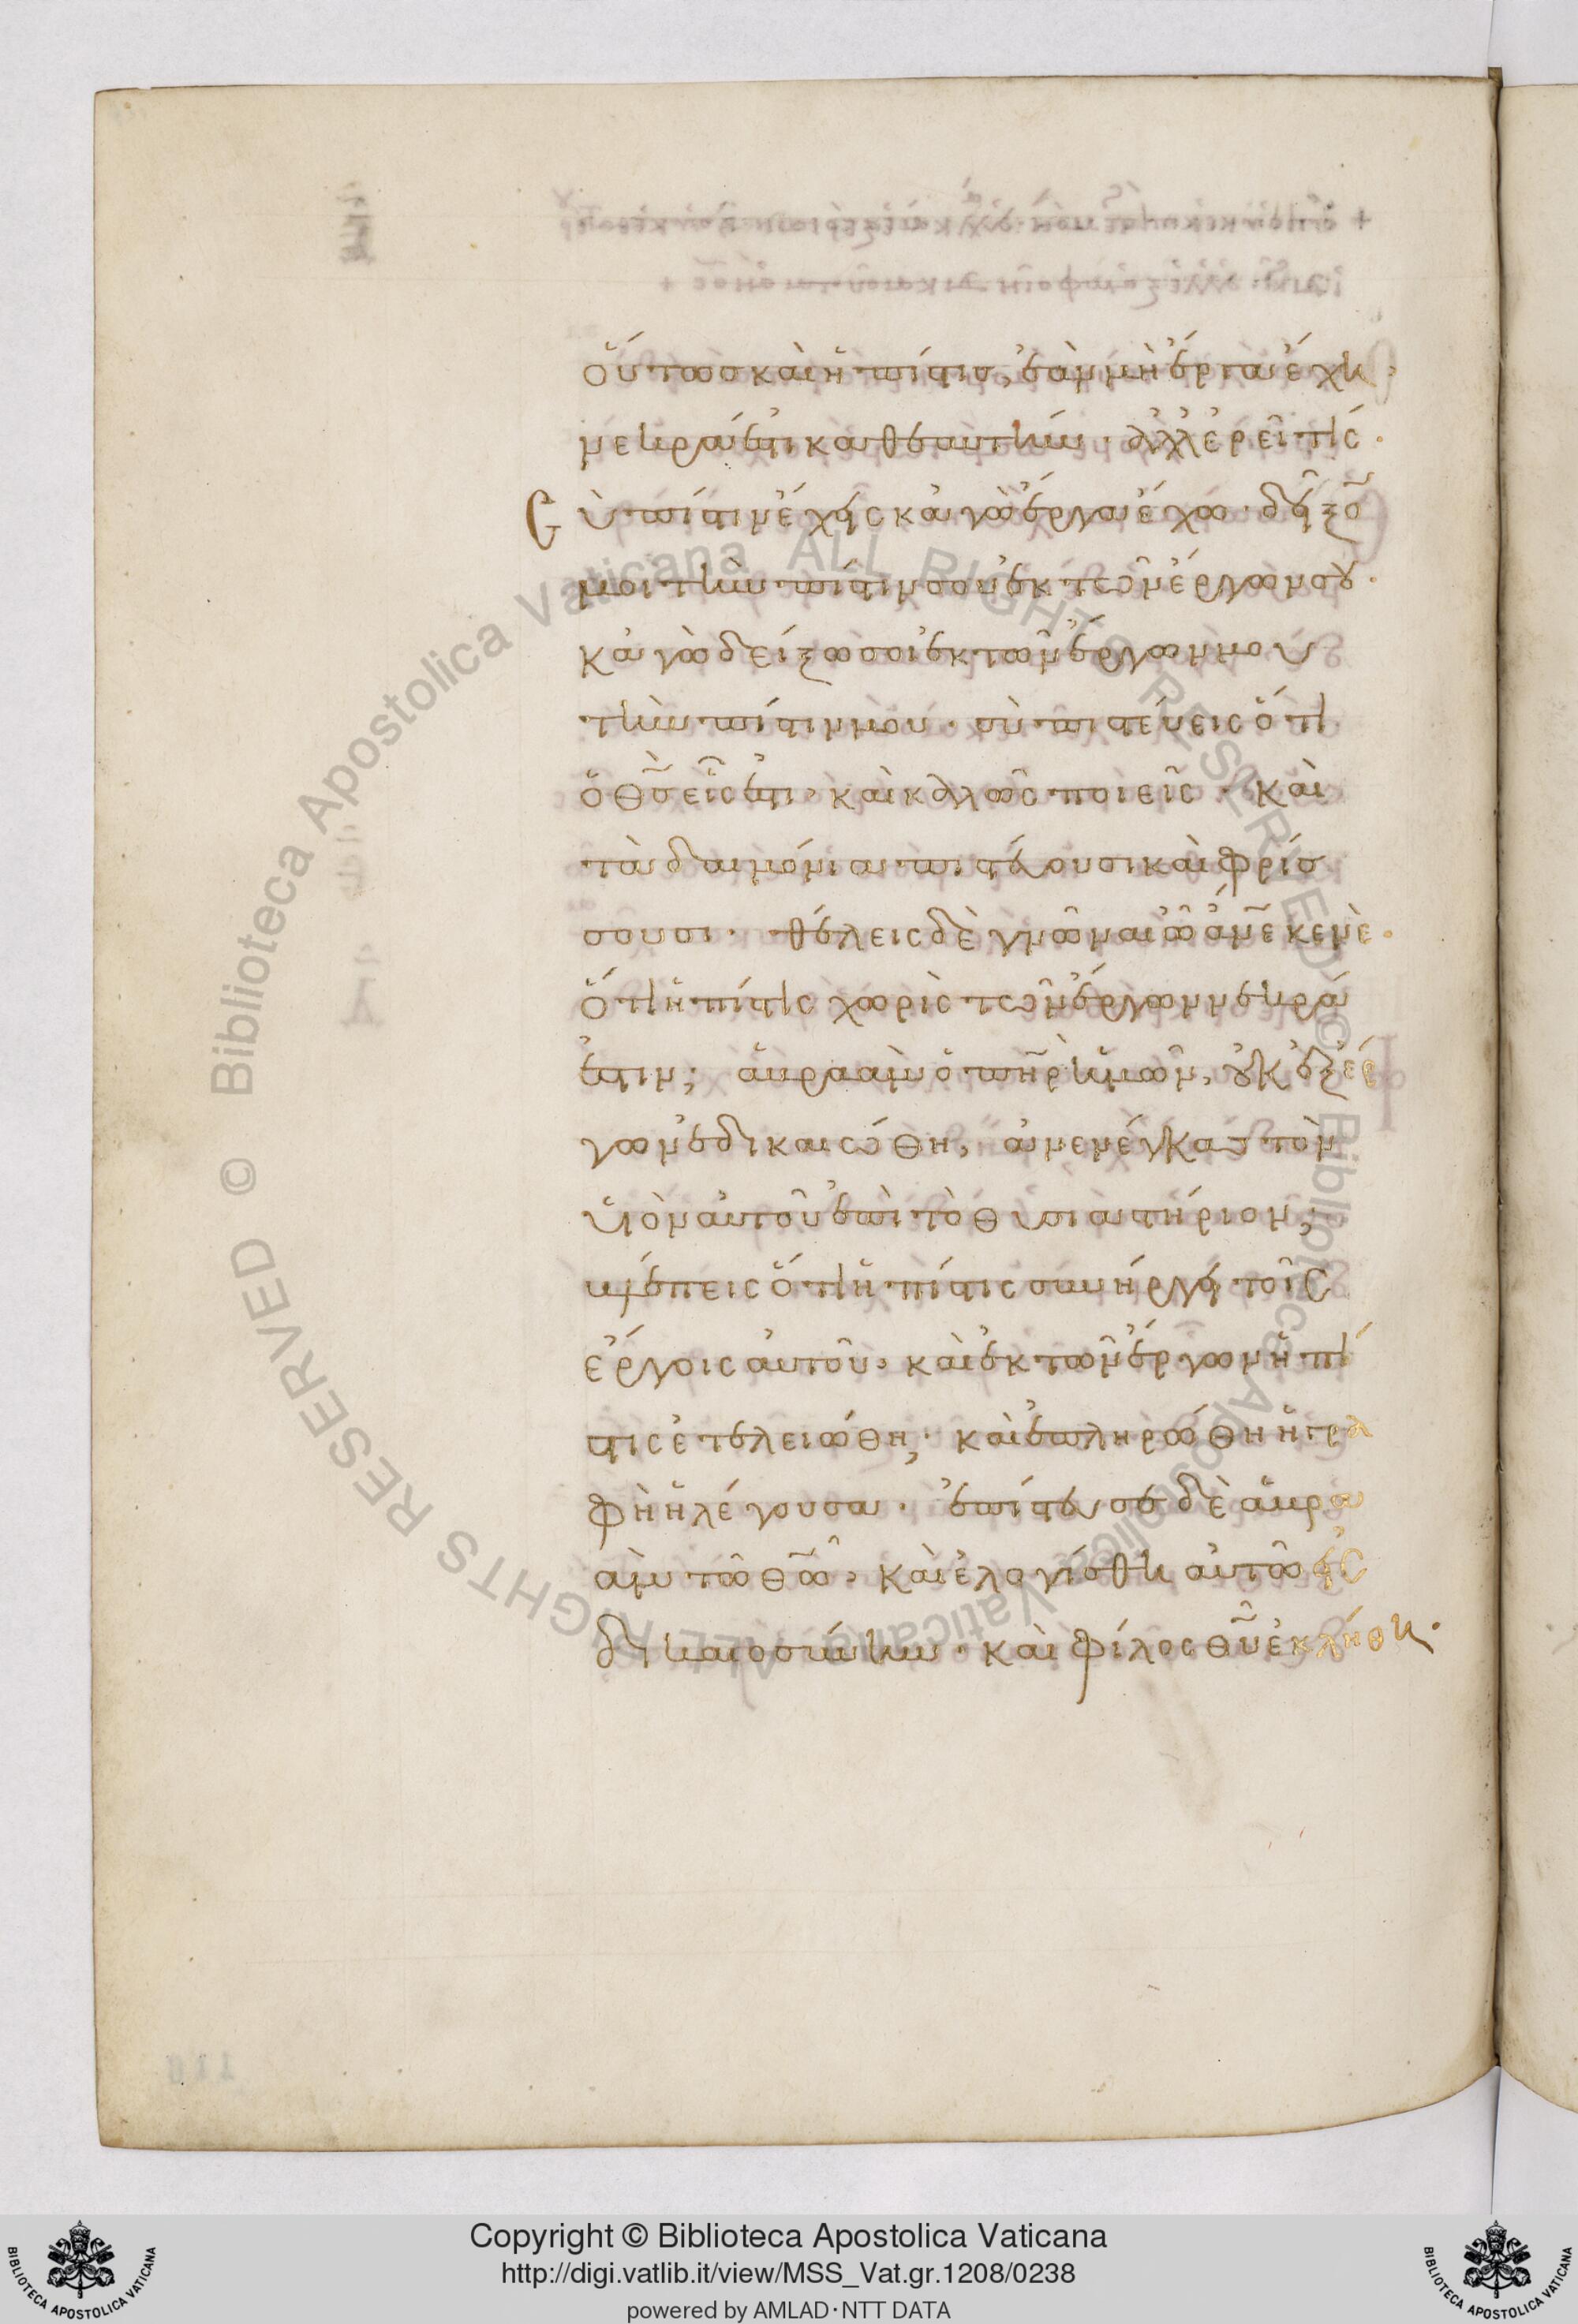 οὕτωσ καὶ ἡ πίστισ, ἐὰν μὴ ἔργα ἔχη,
νεκρά ἐστι καθ ἑαυτήν. ἀλλ ἐρεῖ τίς.
Σὺ πίστιν ἔχεις κἀγὼ ἔργα ἔχω. δεῖξο̄
μοι τὴν πίστιν σου ἐκ τῶν ἔργω̄ σου.
κἀγὼ δείξω σοι ἐκ τῶν ἔργων μου
τὴν πίστιν μου. σὺ πιστεύεις ὅτι
ὁ θ̄ς̄ εἷς ἐστι. καὶ καλῶς ποιεῖς. καὶ
τὰ δαιμόνια πιστεύουσι καὶ φρίσ
σουσι. θέλεις δὲ γνῶναι ὦ ἄν̄ε̄ κενὲ.
ὅτι ἡ πίστις χωρὶς τῶν ἔργων νεκρά
ἐστιν; ἀβραὰμ ὁ π̄η̄ρ̄ ἡμῶν, οὐκ ἐξ ἔρ
γων ἐδικαιώθη, ἀνενέγκας τὸν
υἱὸν αὐτοῦ ἐπὶ τὸ θυσιαστήριον;
βλέπεις ὅτι ἡ πίστις συνήργει τοῖς
ἔργοις αὐτοῦ. καὶ ἐκ τῶν ἔργων ἡ πί
στις ἐτελειώθη, καὶ ἐπληρώθη ἡ γρα
φὴ ἡ λέγουσα. ἐπίστευσε δὲ ἀβρα
ὰμ τῶ θ̄ῶ̄. καὶ ἐλογίσθη αὐτῶ εἰς
δικαιοσύνην. καὶ φίλος θ̄ῦ̄ ἐκλήθη.
Copyright © Biblioteca Apostolica Vaticana
http://digi.vatlib.it/view/MSS_Vat.gr.1208/0238
powered by AMLAD·NTT DATA
BIBLIOTECA APOSTOLICA VATICANA
BIBLIOTECA APOSTOLICA VATICANA
© Biblioteca Apostolica Vaticana ALL RIGHTS RESERVED
© Biblioteca Apostolica Vaticana ALL RIGHTS RESERVED